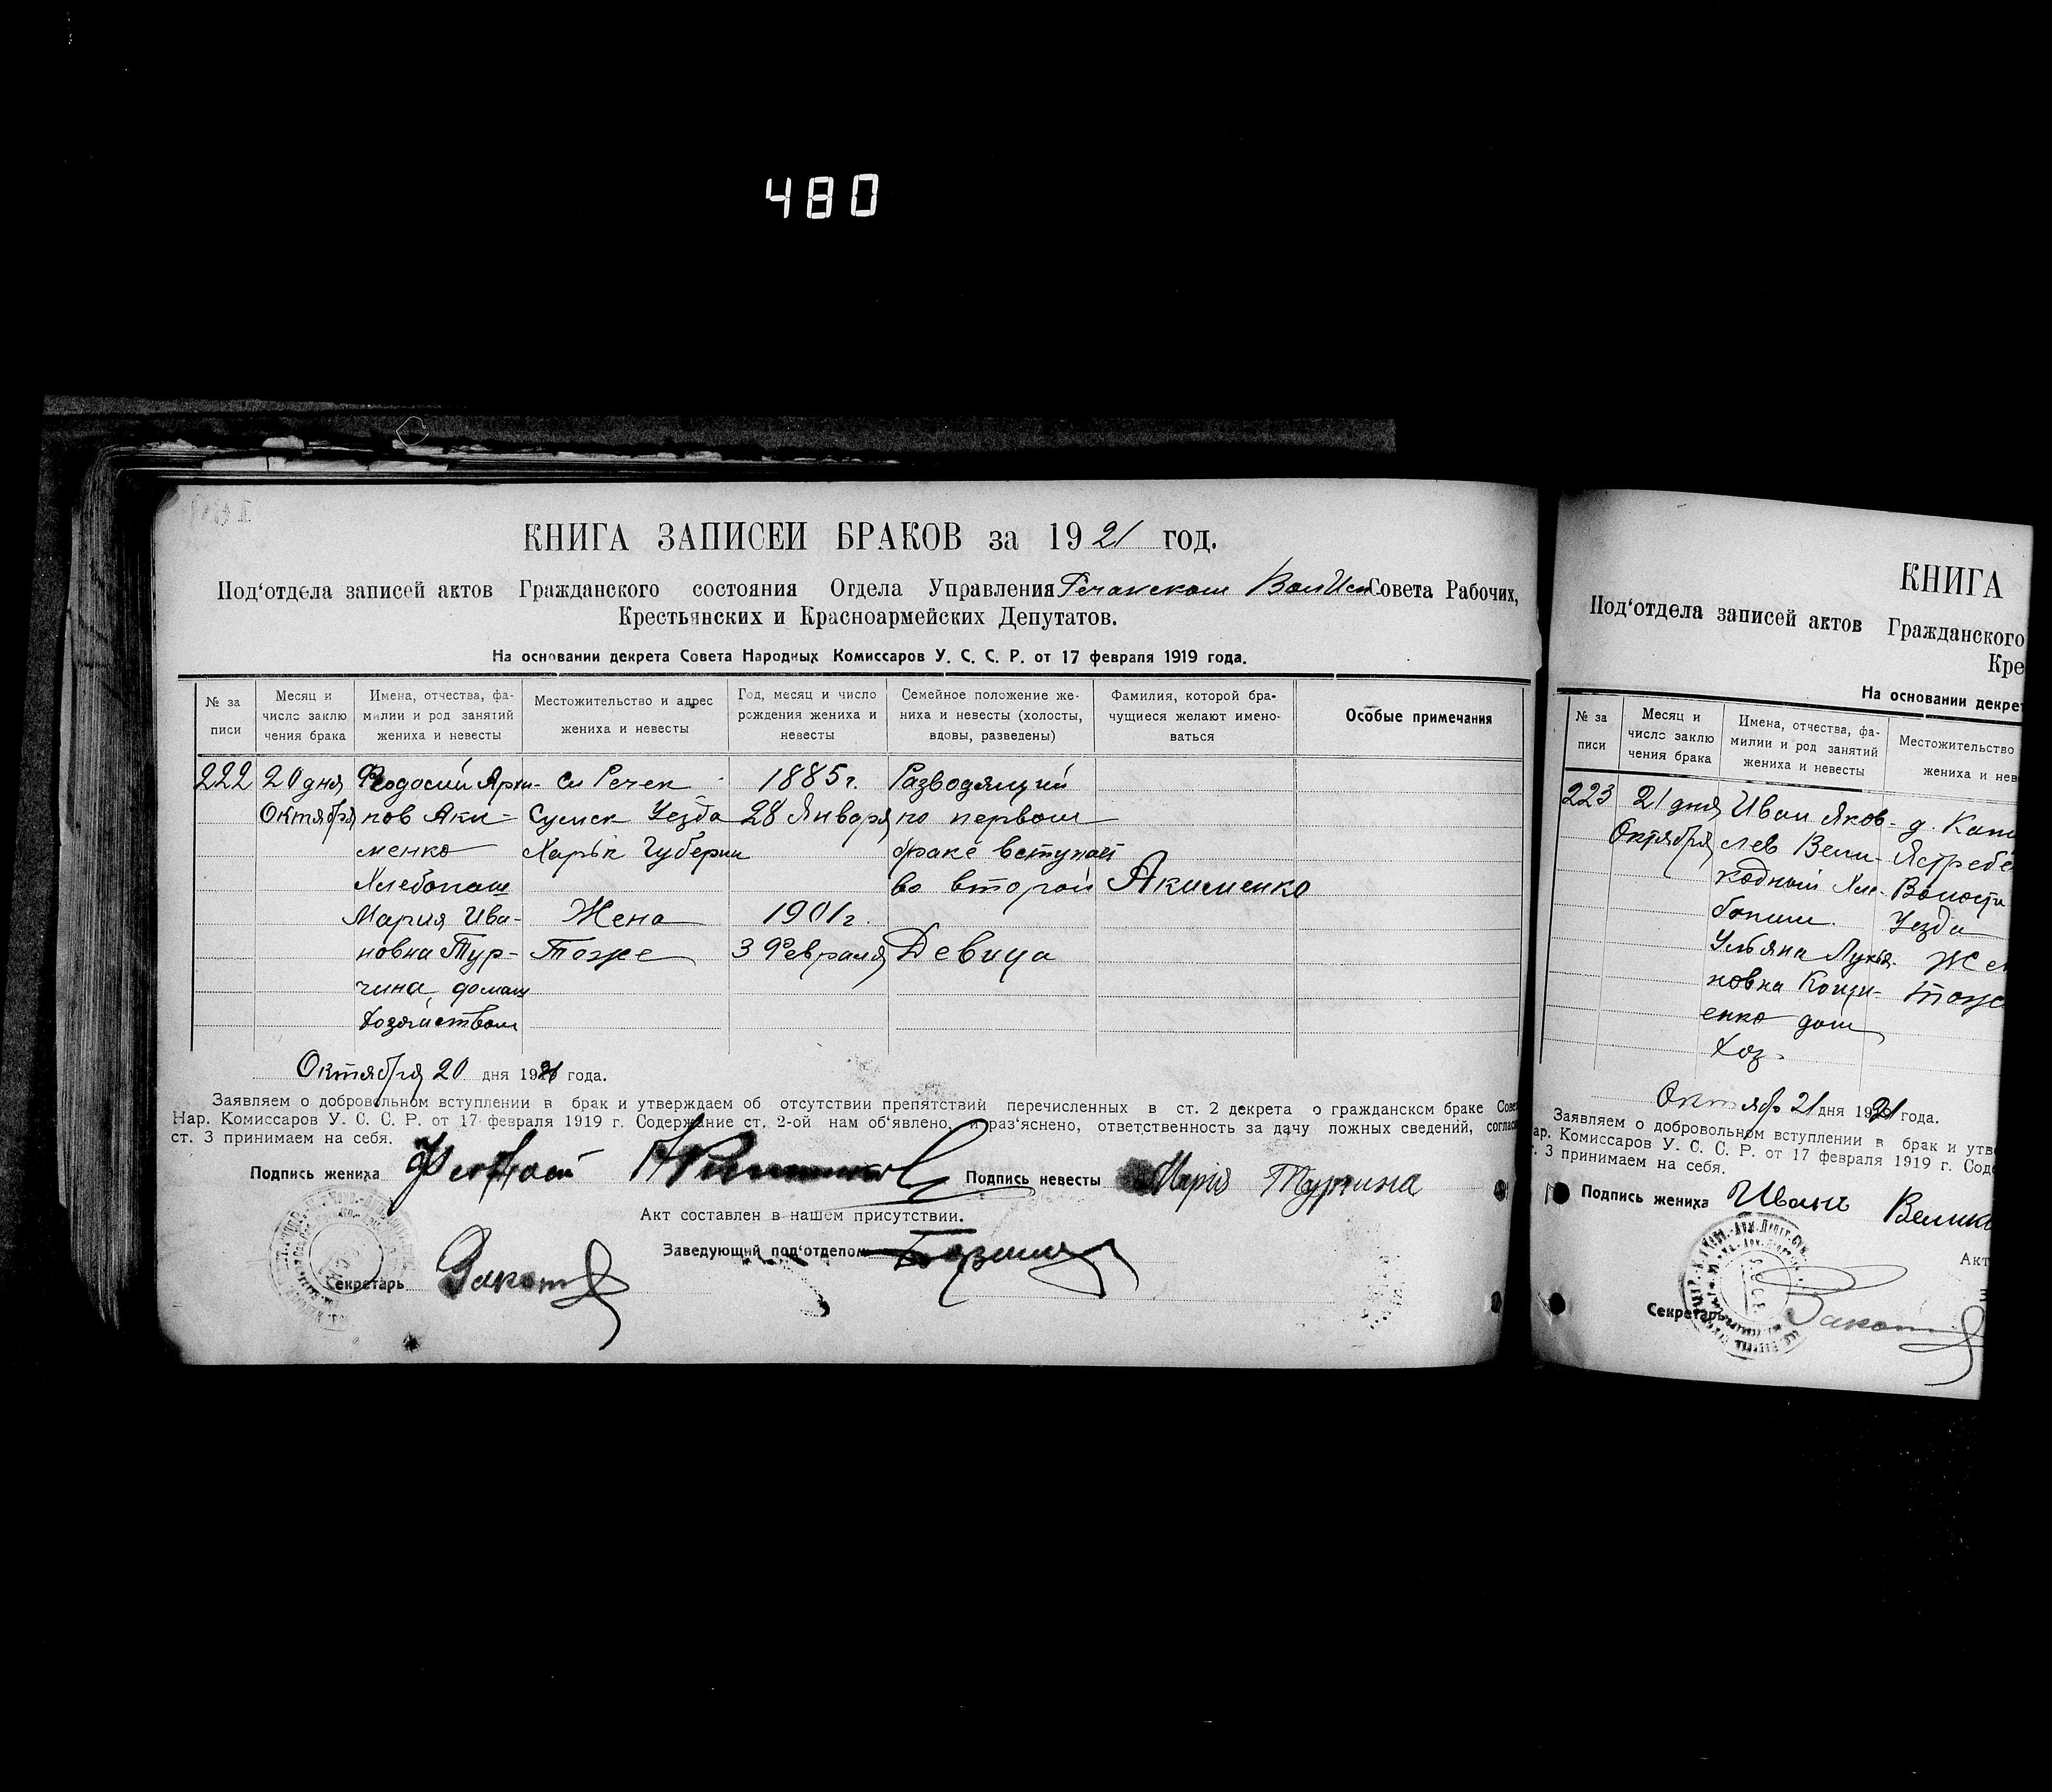 480
КНИГА ЗАПИСЕИ БРАКОВ за 1921 год.
Под‘отдела записей актов Гражданского состояния Отдела Управления Речанском ВолИсп Совета Рабочих,
Крестьянских и Красноармейских Депутатов.
На основании декрета Совета Народных Комиссаров У. С. С. Р. от 17 февраля 1919 года.
№ за писи
Месяц и число заклю чения брака
Имена, отчества, фа- милии и род занятий жениха и невесты
Местожительство и адрес жениха и невесты
Год, месяц и число рождения жениха и невесты
Семейное положение же- ниха и невесты (холосты, вдовы, разведены)
Фамилия, которой бра- чущиеся желают имено- ваться
Особые примечания
222 20 дня Феодосий Архи- сл Речек 1885 г. Разводящий
Октября пов Аки- Сумск Уезда 28 Января по первом
менко Харьк Губернии браке вступает
Хлебопаш во второй Акименко
Мария Ива- Жена 1901 г.
новна Тур- Тоже 3 Февраля Девица
чина, домаш
хозяйством
Октября 20 дня 1921 года.
Заявляем о добровольном вступлении в брак и утверждаем об отсутствии препятствий перечисленных в ст. 2 декрета о гражданском браке Сове
Нар. Комиссаров У. С. С. Р. от 17 февраля 1919 г. Содержание ст. 2-ой нам об‘явлено, и раз‘яснено, ответственность за дачу ложных сведений, соглас
ст. 3 принимаем на себя.
Подпись жениха Подпись невесты Марія Турчина
Акт составлен в нашем присутствии.
Заведующий под‘отделом
Секретарь
КНИГА
Под‘отдела записей актов Гражданского
Кре
На основании декрет
№ за писи
Месяц и число заклю чения брака
Имена, отчества, фа- милии и род занятий жениха и невесты
Местожительство жениха и нев
223 21 дня Иван Яков-
Октября лев Вели- Ястреб
кодный Хле- Волости
бопаш. Уезда
Ульяна Лукья- Жен
новна тоже
енко дом
хоз.
Октяб 21 дня 1921 года.
Заявляем о добровольном вступлении в брак и утв
ар. Комиссаров У. С. С. Р. от 17 февраля 1919 г. Соде
т. 3 принимаем на себя.
Подпись жениха Иванъ Велик
Акт
Секретарь